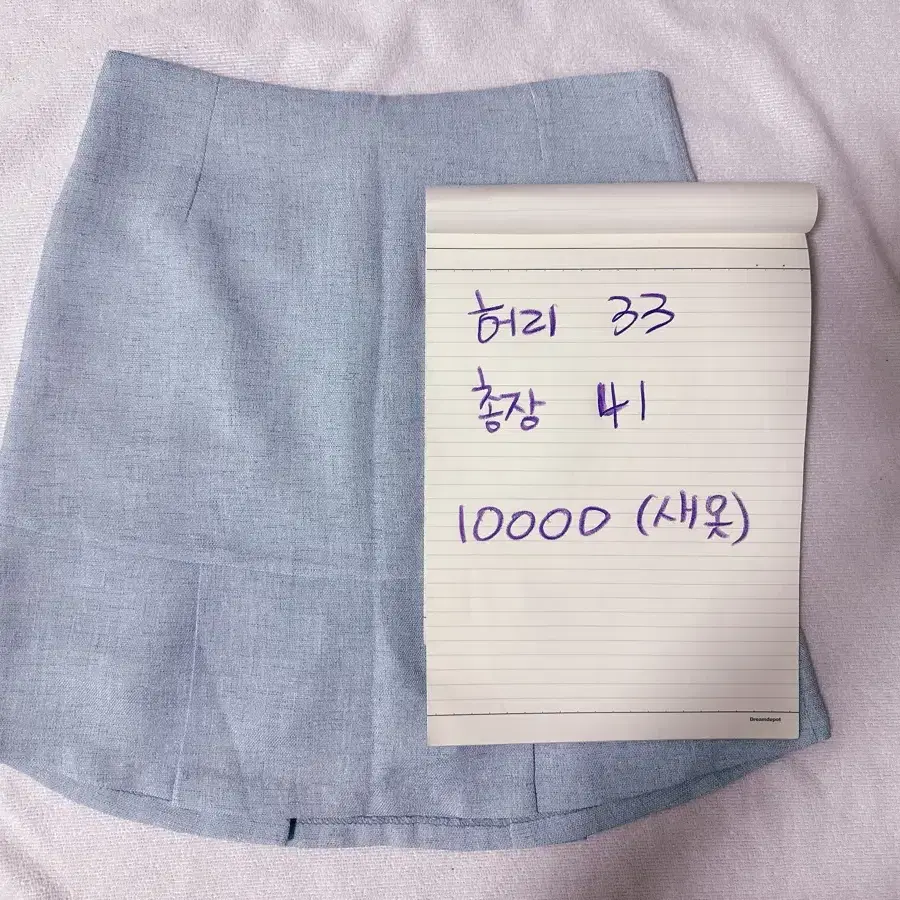 허리 33
총장 41
10000 (새옷)
Dreamdepot